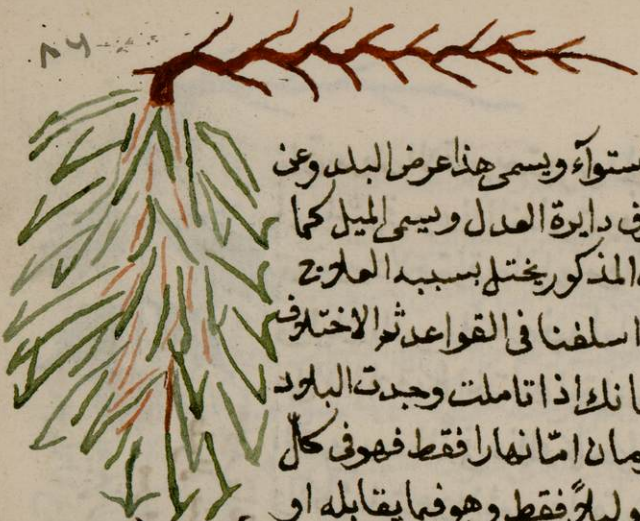 ٨٦
ستوآء ويسمى هذا عرض البلد وعن
دايرة العدل ويسمى الميل كما
المذكور يختل بسببه العلاج
اسلفنا فى القواعد ثم الاختلاف
انك اذا تاملت وجدت البلاد
مان امّا نهارا فقط فهو فى كل
ليلاً فقط وهو فيما يقابله او